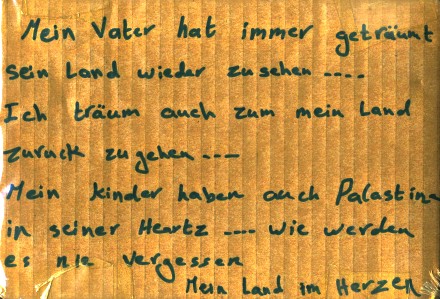 Mein Vater hat immer geträumt
sein Land wieder zu sehen ....
Ich träum auch zum mein Land
zuruck zu gehen ...
Mein kinder haben auch Palastina
in seiner Heartz .... wie werden
es nie vergessen
Mein Land im Herzen